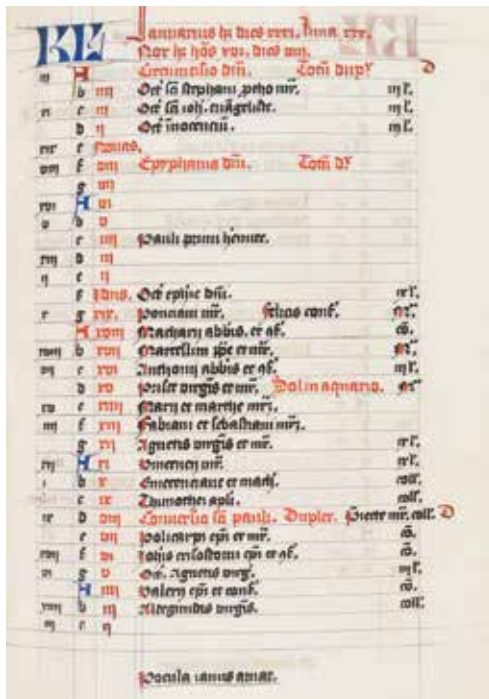 KL Januarius hꝫ dies xxxi, luna xxx.
Nox hꝫ hōs xvi, dies viij.
iij A Circumcisio dn̄i. Totū dupᵡ
b iiij Oct̄ sc̄i stephani ꝓtho mr̄. iij l̄.
xi c iij Oct̄ sc̄i ioh. ewāgeliste. iij l̄.
d ij Oct̄ īnocenciū. iij l̄.
xix e Nonas.
viij f viij Epyphania dn̄i. Totū d᷒
g vij
xvi A vi
v b v
c iiij Pauli primi h̄emite.
xiij d iij
ij e ij
f Idus. Oct̄ eph̄ie dn̄i. ix l̄.
x g xix. Ponciani mr̄. Felicis conf̄.
A xviij Macharij abb̄is. et ɔf̄. cō.
xviij b xvij Marcelli pp̄e et mr̄.
vij c xvi Anthonij abb̄is et ɔf̄. iij l̄.
d xv Prisce virgīs et mr̄. Sol in aquario.
xv e xiiij Marij et marthe mr̄ꝝ.
iiij f xiij Fabiani et sebastiani mr̄ꝝ.
g xij Agnetis virgīs et mr̄. ix l̄.
xij A xi Vincencij mr̄. ix l̄.
i b x Emerenciane et mach̄. coll̄.
c ix Thimothei apl̄i. coll̄.
ix d viij Conuersio sc̄i pauli. Duplex. Proiecte mr̄. coll̄.
e vij Policarpi ep̄i et mr̄. cō.
xvij f vi Ioh̄is crisostomi ep̄i et ɔf̄. cō.
vi g v Oct̄. Agnetis virḡ. iij l̄.
A iiij Valerij ep̄i et conf̄. cō.
xiiij b iij Aldegundis virgīs. coll̄.
iij c ij
Pocula ianus amat.